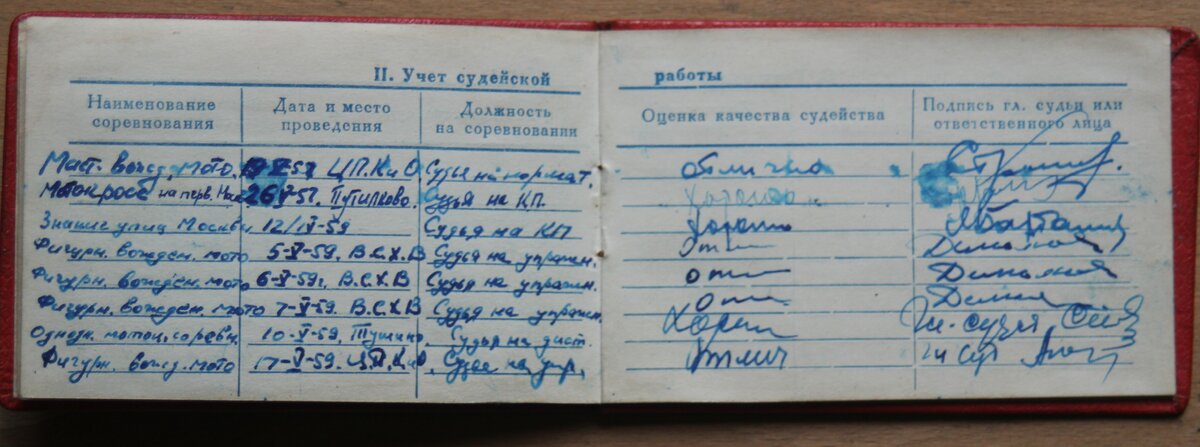 II. Учет судейской работы
Наименование соревнования Дата и место проведения Должность на соревновании Оценка качества судейства Подпись гл. судьи или ответственного лица
Мат. вожд. мото. ЦП.КиО Судья на нормат. отлично
Мотокросс на перв. 26 Путилково. Судья на КП. хорошо
Знание улиц Москвы 12/IV-59 Судья на КП хорошо
Фигурн. вожден. мото 5-V-59г. В.С.Х.В Судья на упражн. отл
Фигурн. вожден. мото 6-V-59г. В.С.Х.В Судья на упражн. отл
Фигурн. вожден. мото 7-V-59. В.С.Х.В Судья на упражн. отл
Одноdн. мотоц. соревн. 10-V-59. Тушино. Судья на дист. Хорош Гл. судья
Фигурн. вожд. мото 17-V-59. Ц.П.КиО Судья на упр. Отлич гл суд